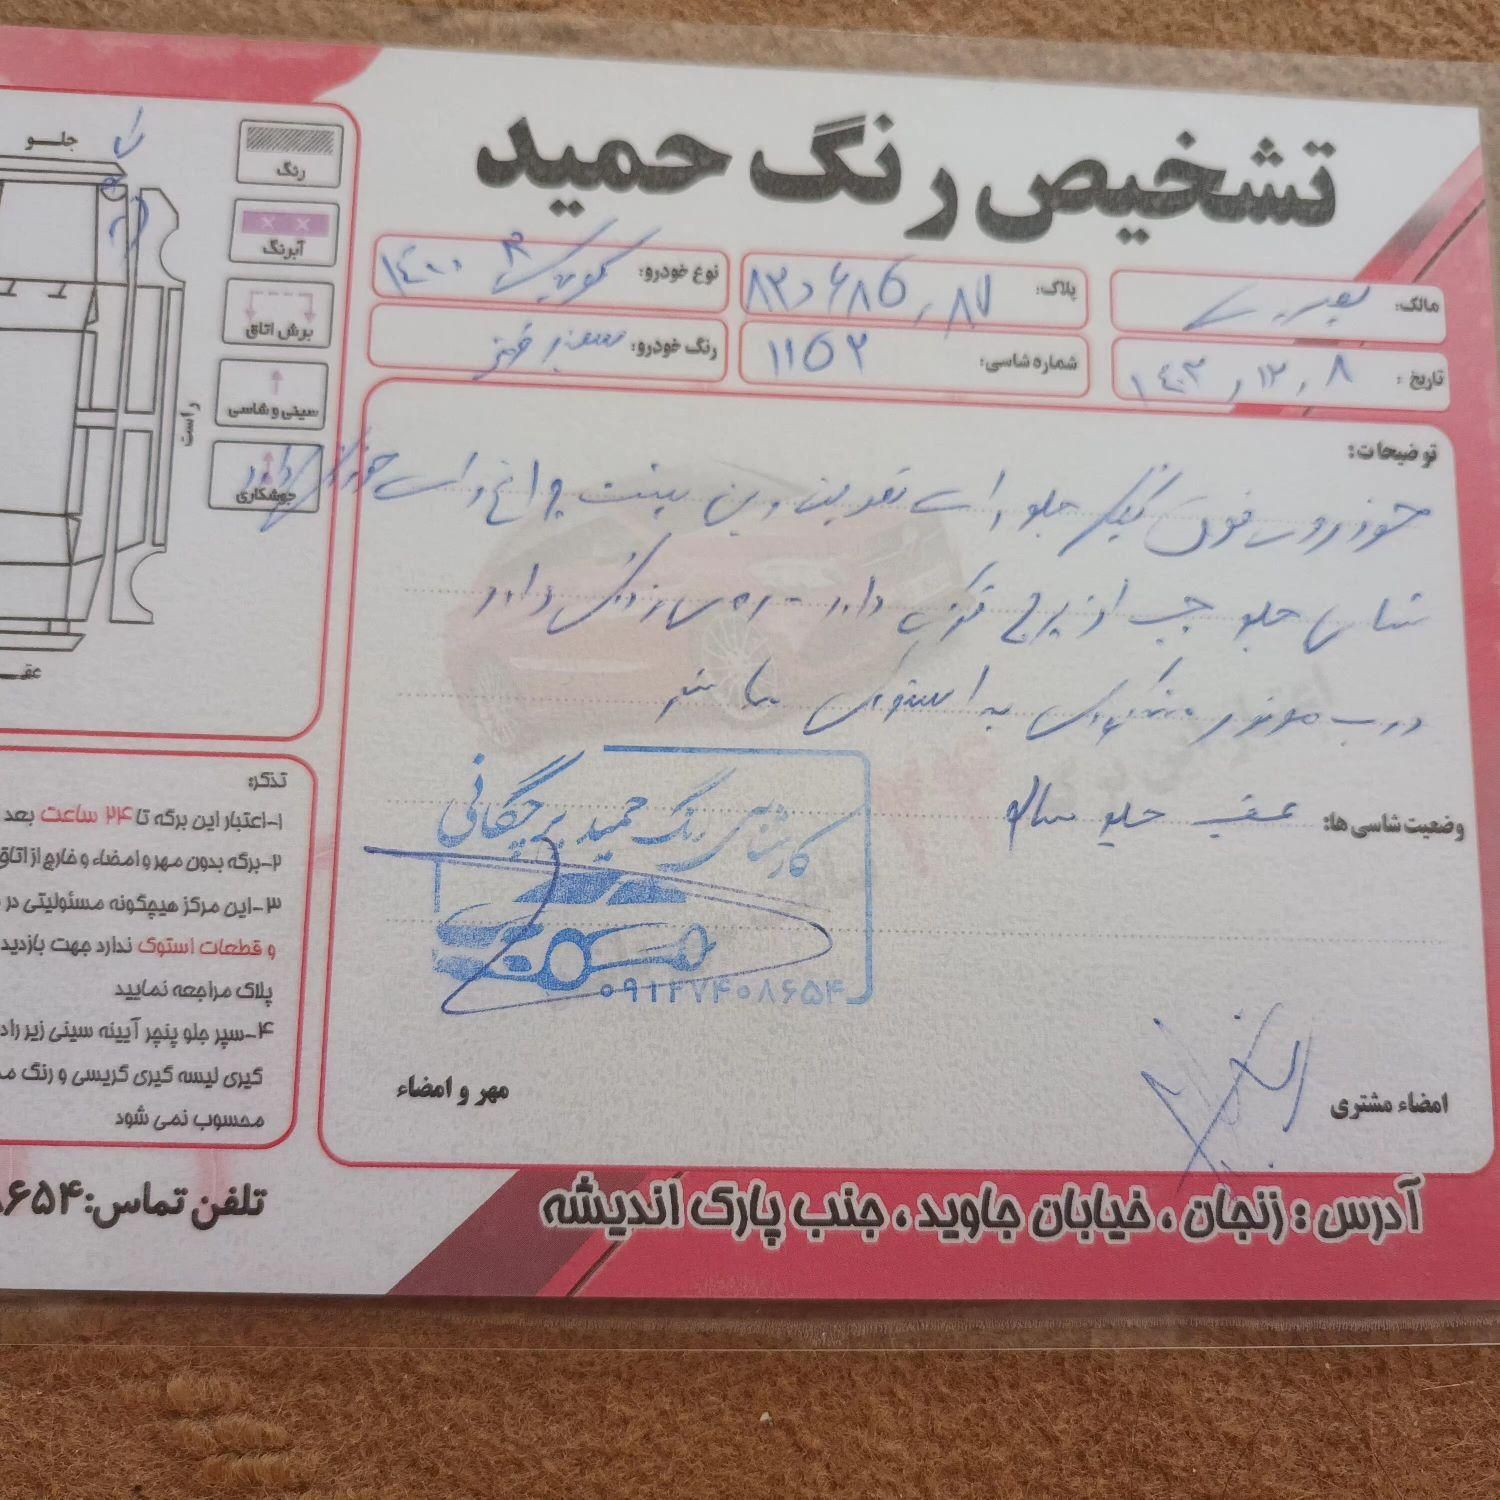 تشخیص رنگ حمید
مالک:
پلاک: ۸۳د۶۸۵٫۸۷
نوع خودرو: کوییک ۱۴۰۰
تاریخ: ۱۴۰۳٫۱۲٫۸
شماره شاسی: ۱۱۵۲
رنگ خودرو: سفید
توضیحات:
خودروی فوق گلگیر جلو راست تعویض و پشت چراغ راست خوردگی دارد
شاسی جلو چپ از دارد - رنگ دارد
درب موتور به استوک
وضعیت شاسی ها: عقب جلو سالم
کارشناسی رنگ حمید برچگانی
۰۹۱۲۷۴۰۸۶۵۴
امضاء مشتری
مهر و امضاء
آدرس : زنجان ، خیابان جاوید ، جنب پارک اندیشه
رنگ
آبرنگ
برش اتاق
سینی و شاسی
جوشکاری
جلو
راست
عقب
تذکر:
۱-اعتبار این برگه تا ۲۴ ساعت بعد
۲-برگه بدون مهر و امضاء و خارج از اتاق
۳-این مرکز هیچگونه مسئولیتی در
و قطعات استوک ندارد جهت بازدید
پلاک مراجعه نمایید
۴-سپر جلو پنچر آیینه سینی زیر راد
گیری لیسه گیری کریسی و رنگ
محسوب نمی شود
تلفن تماس: ۶۵۴